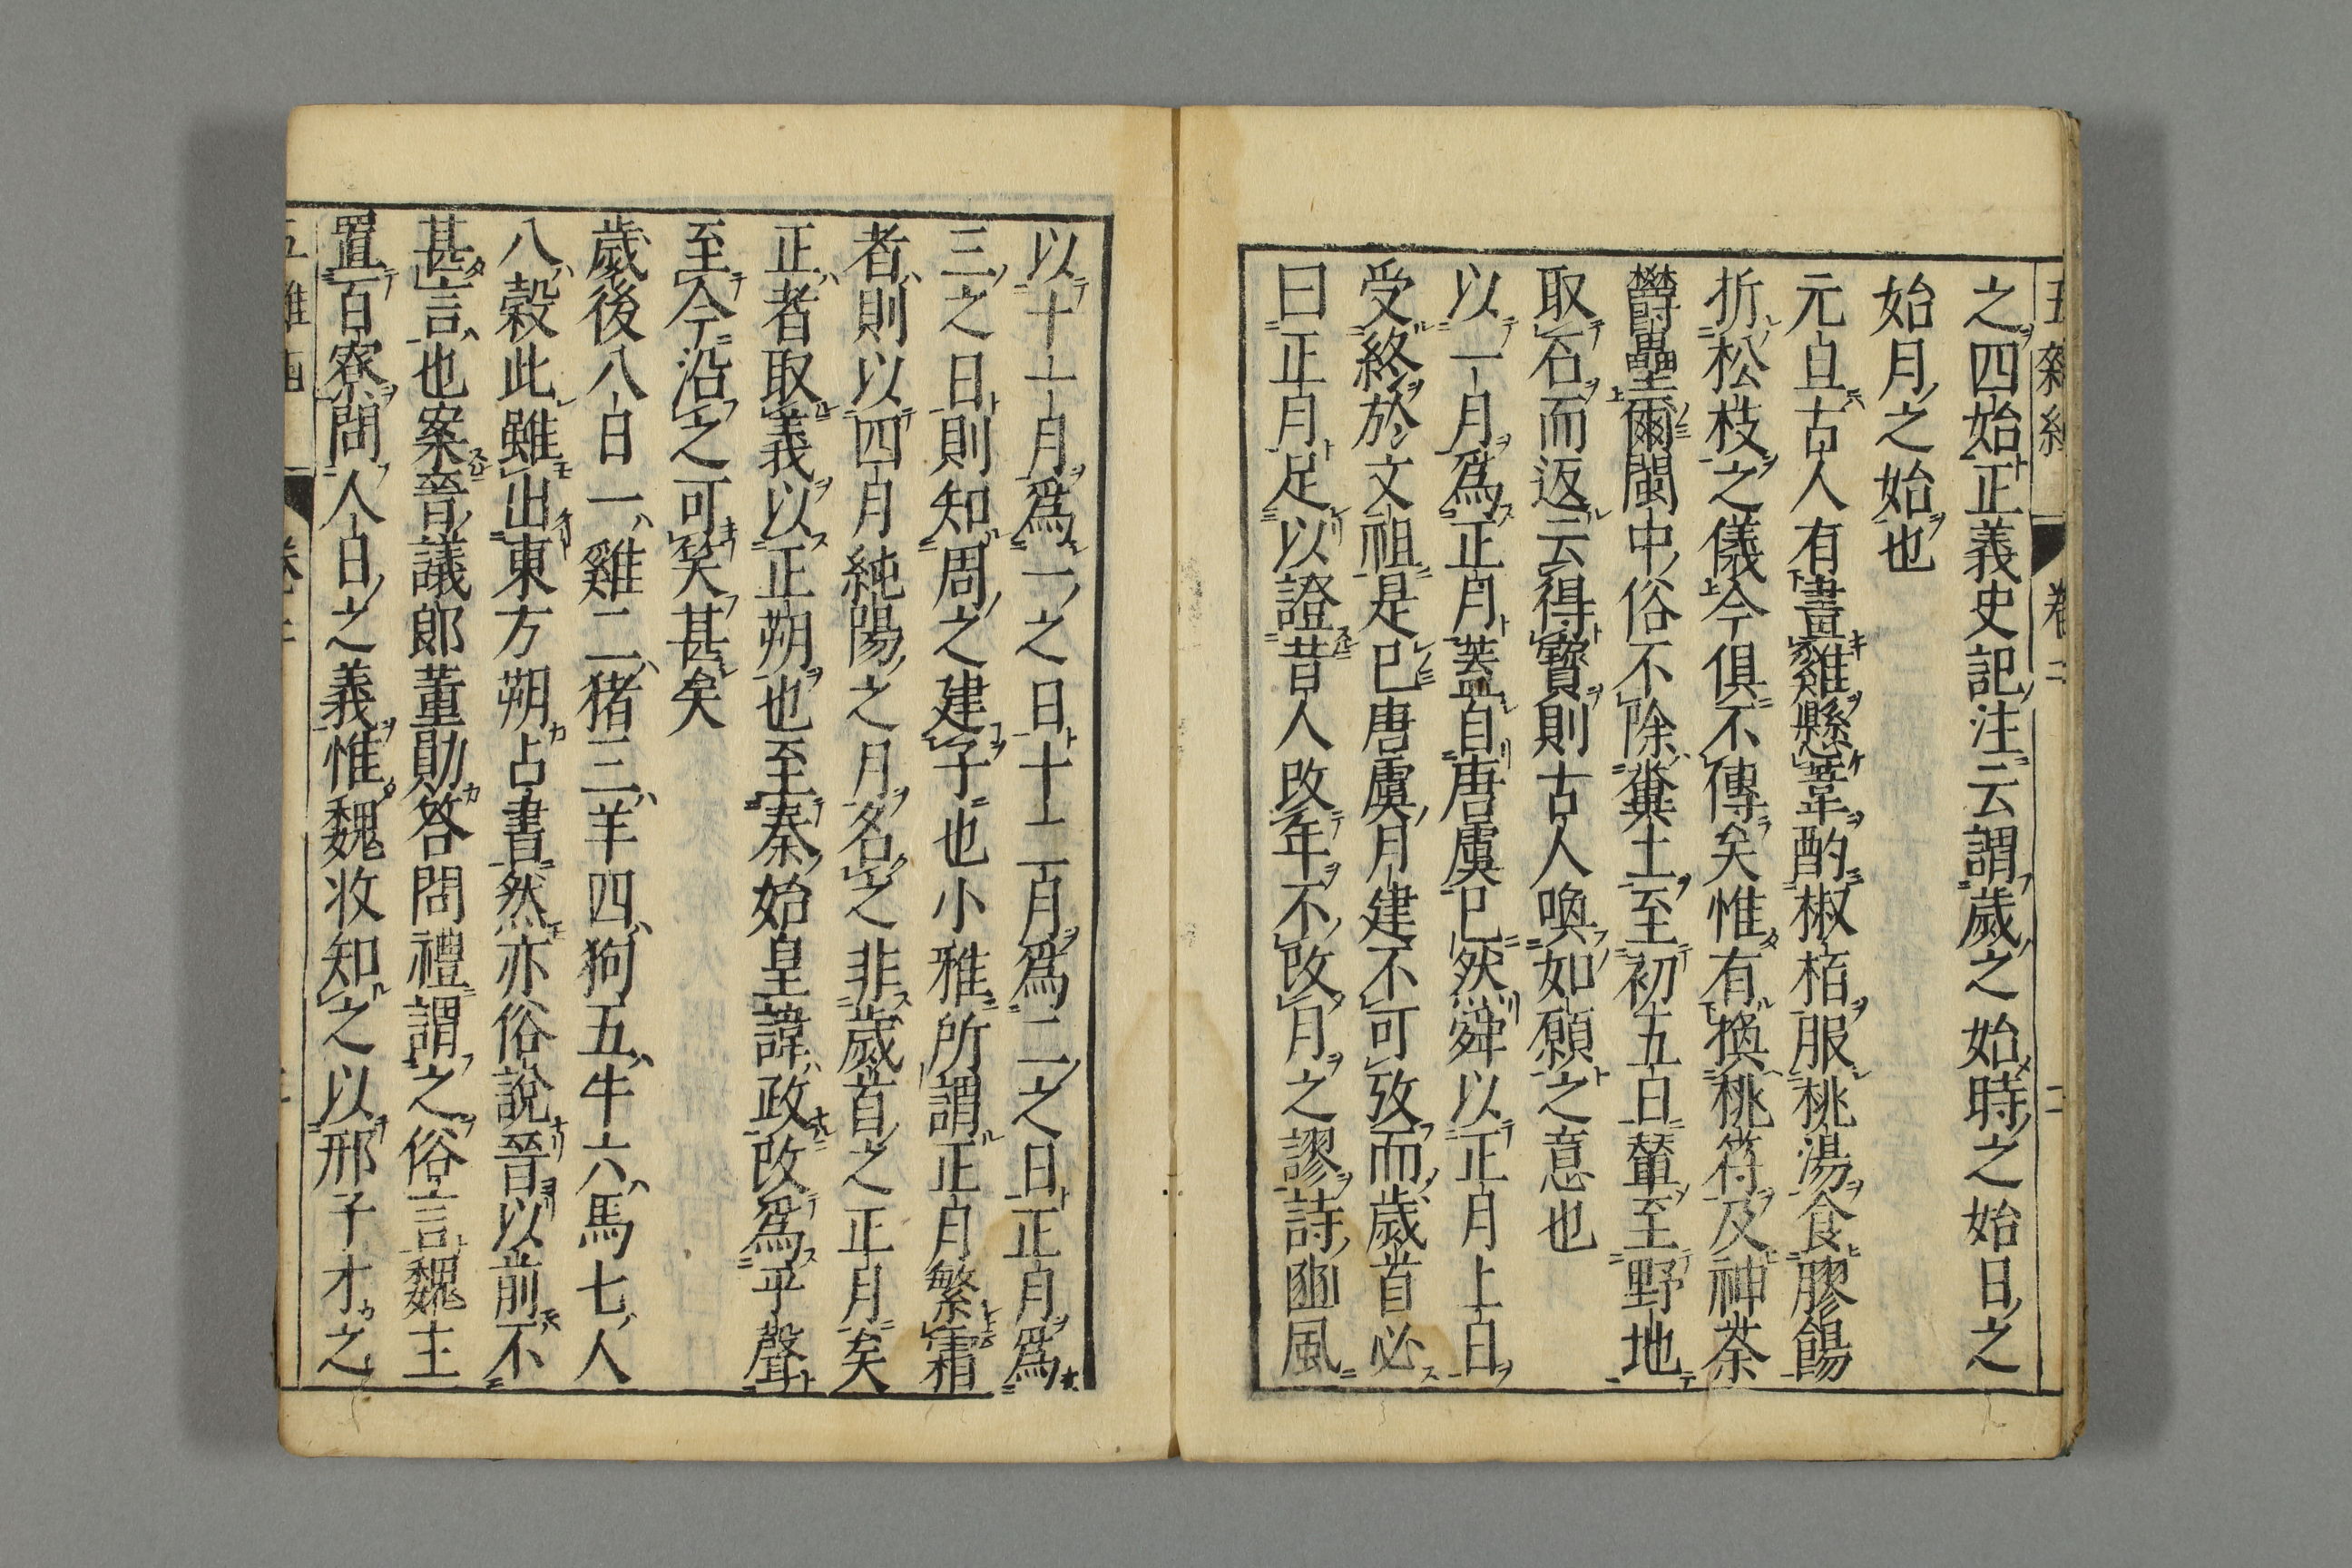 五雜組 卷二 二
之四始正義史記注云謂歲之始時之始日之
始月之始也
元旦古人有畫雞懸葦酌椒栢服桃湯食膠餳
折松枝之儀今俱不傳矣惟有換桃符及神荼
欝壘爾閩中俗不除糞土至初五日輦至野地
取石而返云得寶則古人喚如願之意也
以一月爲正月蓋自唐虞已然舜以正月上日
受終於文祖是已唐虞月建不可攷而歲首必
曰正月足以證昔人改年不改月之謬詩豳風
以十一月爲一之日十二月爲二之日正月爲
三之日則知周之建子也小雅所謂正月繁霜
者則以四月純陽之月名之非歲首之正月矣
正者取義以正朔也至秦始皇諱政改爲平聲
至今沿之可笑甚矣
歲後八日一雞二猪三羊四狗五牛六馬七人
八穀此雖出東方朔占書然亦俗說晉以前不
甚言也案晉議郎董勛答問禮謂之俗言魏主
置百寮問人日之義惟魏收知之以邢子才之